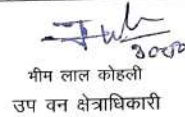 भीम लाल कोहली
उप वन क्षेत्राधिकारी